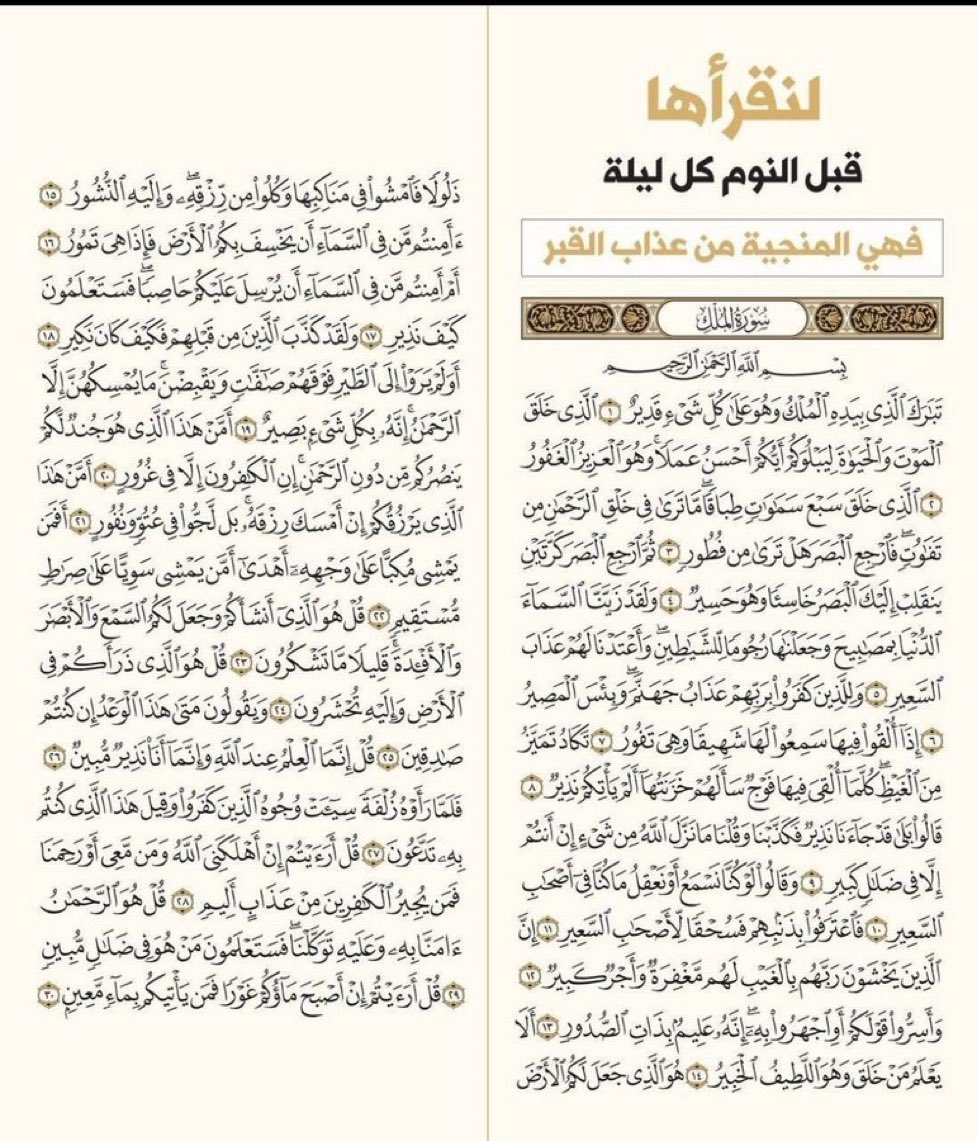 لنقرأها
قبل النوم كل ليلة
فهي المنجية من عذاب القبر
سُورَةُ المُلْكِ
بِسْمِ ٱللَّهِ ٱلرَّحْمَٰنِ ٱلرَّحِيمِ
تَبَٰرَكَ ٱلَّذِى بِيَدِهِ ٱلْمُلْكُ وَهُوَ عَلَىٰ كُلِّ شَىْءٍ قَدِيرٌ ١ ٱلَّذِى خَلَقَ
ٱلْمَوْتَ وَٱلْحَيَوٰةَ لِيَبْلُوَكُمْ أَيُّكُمْ أَحْسَنُ عَمَلًا ۚ وَهُوَ ٱلْعَزِيزُ ٱلْغَفُورُ
٢ ٱلَّذِى خَلَقَ سَبْعَ سَمَٰوَٰتٍ طِبَاقًا ۖ مَّا تَرَىٰ فِى خَلْقِ ٱلرَّحْمَٰنِ مِن
تَفَٰوُتٍ ۖ فَٱرْجِعِ ٱلْبَصَرَ هَلْ تَرَىٰ مِن فُطُورٍ ٣ ثُمَّ ٱرْجِعِ ٱلْبَصَرَ كَرَّتَيْنِ
يَنقَلِبْ إِلَيْكَ ٱلْبَصَرُ خَاسِئًا وَهُوَ حَسِيرٌ ٤ وَلَقَدْ زَيَّنَّا ٱلسَّمَآءَ
ٱلدُّنْيَا بِمَصَٰبِيحَ وَجَعَلْنَٰهَا رُجُومًا لِّلشَّيَٰطِينِ ۖ وَأَعْتَدْنَا لَهُمْ عَذَابَ
ٱلسَّعِيرِ ٥ وَلِلَّذِينَ كَفَرُوا۟ بِرَبِّهِمْ عَذَابُ جَهَنَّمَ ۖ وَبِئْسَ ٱلْمَصِيرُ
٦ إِذَآ أُلْقُوا۟ فِيهَا سَمِعُوا۟ لَهَا شَهِيقًا وَهِىَ تَفُورُ ٧ تَكَادُ تَمَيَّزُ
مِنَ ٱلْغَيْظِ ۖ كُلَّمَآ أُلْقِىَ فِيهَا فَوْجٌ سَأَلَهُمْ خَزَنَتُهَآ أَلَمْ يَأْتِكُمْ نَذِيرٌ ٨
قَالُوا۟ بَلَىٰ قَدْ جَآءَنَا نَذِيرٌ فَكَذَّبْنَا وَقُلْنَا مَا نَزَّلَ ٱللَّهُ مِن شَىْءٍ إِنْ أَنتُمْ
إِلَّا فِى ضَلَٰلٍ كَبِيرٍ ٩ وَقَالُوا۟ لَوْ كُنَّا نَسْمَعُ أَوْ نَعْقِلُ مَا كُنَّا فِىٓ أَصْحَٰبِ
ٱلسَّعِيرِ ١٠ فَٱعْتَرَفُوا۟ بِذَنۢبِهِمْ فَسُحْقًا لِّأَصْحَٰبِ ٱلسَّعِيرِ ١١ إِنَّ
ٱلَّذِينَ يَخْشَوْنَ رَبَّهُم بِٱلْغَيْبِ لَهُم مَّغْفِرَةٌ وَأَجْرٌ كَبِيرٌ ١٢
وَأَسِرُّوا۟ قَوْلَكُمْ أَوِ ٱجْهَرُوا۟ بِهِۦٓ ۖ إِنَّهُۥ عَلِيمٌۢ بِذَاتِ ٱلصُّدُورِ ١٣ أَلَا
يَعْلَمُ مَنْ خَلَقَ وَهُوَ ٱللَّطِيفُ ٱلْخَبِيرُ ١٤ هُوَ ٱلَّذِى جَعَلَ لَكُمُ ٱلْأَرْضَ
ذَلُولًا فَٱمْشُوا۟ فِى مَنَاكِبِهَا وَكُلُوا۟ مِن رِّزْقِهِۦ ۖ وَإِلَيْهِ ٱلنُّشُورُ ١٥
ءَأَمِنتُم مَّن فِى ٱلسَّمَآءِ أَن يَخْسِفَ بِكُمُ ٱلْأَرْضَ فَإِذَا هِىَ تَمُورُ ١٦
أَمْ أَمِنتُم مَّن فِى ٱلسَّمَآءِ أَن يُرْسِلَ عَلَيْكُمْ حَاصِبًا ۖ فَسَتَعْلَمُونَ
كَيْفَ نَذِيرِ ١٧ وَلَقَدْ كَذَّبَ ٱلَّذِينَ مِن قَبْلِهِمْ فَكَيْفَ كَانَ نَكِيرِ ١٨
أَوَلَمْ يَرَوْا۟ إِلَى ٱلطَّيْرِ فَوْقَهُمْ صَٰٓفَّٰتٍ وَيَقْبِضْنَ ۚ مَا يُمْسِكُهُنَّ إِلَّا
ٱلرَّحْمَٰنُ ۚ إِنَّهُۥ بِكُلِّ شَىْءٍۭ بَصِيرٌ ١٩ أَمَّنْ هَٰذَا ٱلَّذِى هُوَ جُندٌ لَّكُمْ
يَنصُرُكُم مِّن دُونِ ٱلرَّحْمَٰنِ ۚ إِنِ ٱلْكَٰفِرُونَ إِلَّا فِى غُرُورٍ ٢٠ أَمَّنْ هَٰذَا
ٱلَّذِى يَرْزُقُكُمْ إِنْ أَمْسَكَ رِزْقَهُۥ ۚ بَل لَّجُّوا۟ فِى عُتُوٍّ وَنُفُورٍ ٢١ أَفَمَن
يَمْشِى مُكِبًّا عَلَىٰ وَجْهِهِۦٓ أَهْدَىٰٓ أَمَّن يَمْشِى سَوِيًّا عَلَىٰ صِرَٰطٍ
مُّسْتَقِيمٍ ٢٢ قُلْ هُوَ ٱلَّذِىٓ أَنشَأَكُمْ وَجَعَلَ لَكُمُ ٱلسَّمْعَ وَٱلْأَبْصَٰرَ
وَٱلْأَفْـِٔدَةَ ۖ قَلِيلًا مَّا تَشْكُرُونَ ٢٣ قُلْ هُوَ ٱلَّذِى ذَرَأَكُمْ فِى
ٱلْأَرْضِ وَإِلَيْهِ تُحْشَرُونَ ٢٤ وَيَقُولُونَ مَتَىٰ هَٰذَا ٱلْوَعْدُ إِن كُنتُمْ
صَٰدِقِينَ ٢٥ قُلْ إِنَّمَا ٱلْعِلْمُ عِندَ ٱللَّهِ وَإِنَّمَآ أَنَا۠ نَذِيرٌ مُّبِينٌ ٢٦
فَلَمَّا رَأَوْهُ زُلْفَةً سِيٓـَٔتْ وُجُوهُ ٱلَّذِينَ كَفَرُوا۟ وَقِيلَ هَٰذَا ٱلَّذِى كُنتُم
بِهِۦ تَدَّعُونَ ٢٧ قُلْ أَرَءَيْتُمْ إِنْ أَهْلَكَنِىَ ٱللَّهُ وَمَن مَّعِىَ أَوْ رَحِمَنَا
فَمَن يُجِيرُ ٱلْكَٰفِرِينَ مِنْ عَذَابٍ أَلِيمٍ ٢٨ قُلْ هُوَ ٱلرَّحْمَٰنُ
ءَامَنَّا بِهِۦ وَعَلَيْهِ تَوَكَّلْنَا ۖ فَسَتَعْلَمُونَ مَنْ هُوَ فِى ضَلَٰلٍ مُّبِينٍ
٢٩ قُلْ أَرَءَيْتُمْ إِنْ أَصْبَحَ مَآؤُكُمْ غَوْرًا فَمَن يَأْتِيكُم بِمَآءٍ مَّعِينٍۭ ٣٠